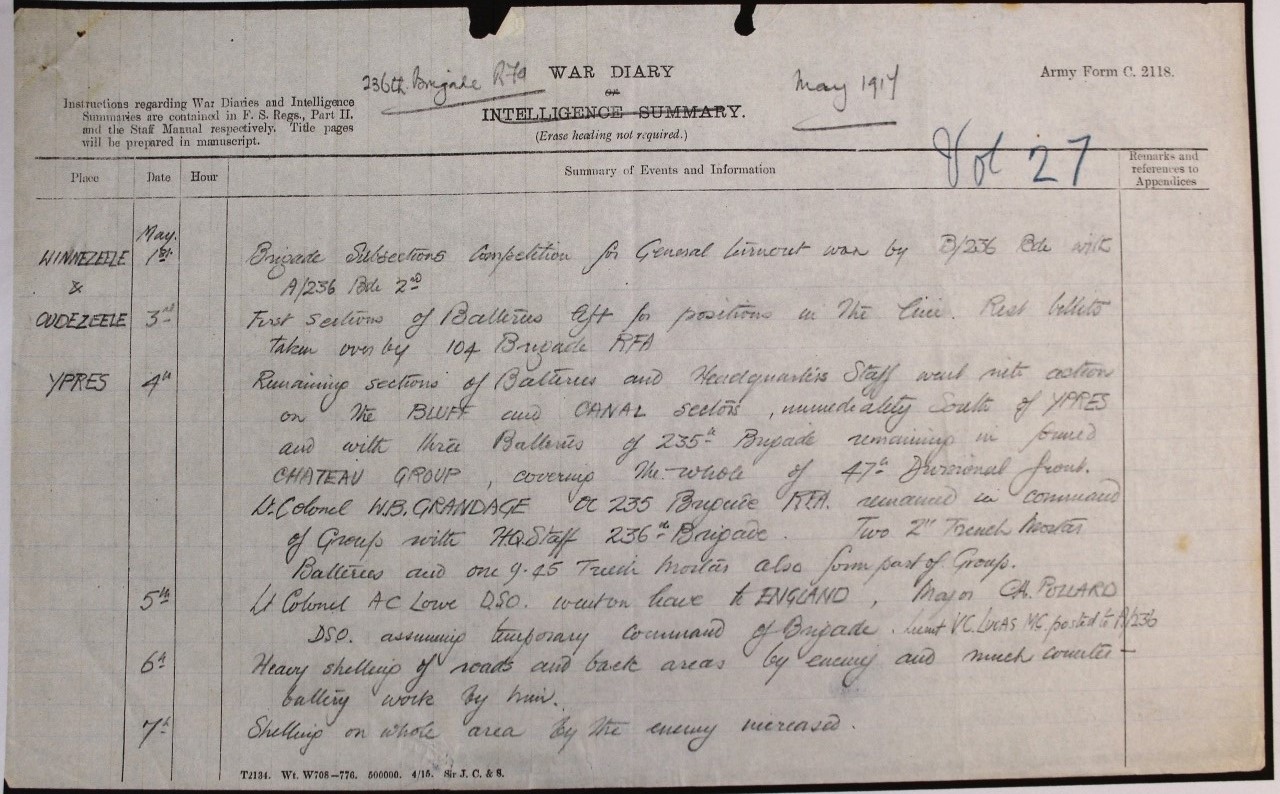 236th Brigade RFA
WAR DIARY
or
INTELLIGENCE SUMMARY.
(Erase heading not required.)
May 1917
Army Form C. 2118.
Instructions regarding War Diaries and Intelligence
Summaries are contained in F. S. Regs., Part II.
and the Staff Manual respectively. Title pages
will be prepared in manuscript.
Vol 27
Place Date Hour Summary of Events and Information Remarks and
references to
Appendices
May.
WINNEZEELE 1st Brigade Subsections Competition for General turnout won by B/236 Bde with
& A/236 Bde 2nd
OUDEZEELE 3rd First sections of Batteries left for positions in the line. Rest billets
taken over by 104 Brigade RFA
YPRES 4th Remaining sections of Batteries and Headquarters Staff went into action
on the BLUFF and CANAL sectors, immediately South of YPRES
and with three Batteries of 235th Brigade remaining in formed
CHATEAU GROUP, covering the whole of 47th Divisional front.
Lt. Colonel W.B. GRANDAGE OC 235 Brigade RFA. remained in command
of Group with HQ Staff 236th Brigade. Two 2" Trench Mortar
Batteries and one 9.45 Trench Mortar also form part of Group.
5th Lt Colonel AC Lowe DSO. went on leave to ENGLAND, Major CH. POLLARD
DSO. assuming temporary command of Brigade. Lieut VC. LUCAS MC. posted to A/236
6th Heavy shelling of roads and back areas by enemy and much counter-
battery work by him.
7th Shelling on whole area by the enemy increased.
T2134. Wt. W708—776. 500000. 4/15. Sir J. C. & S.